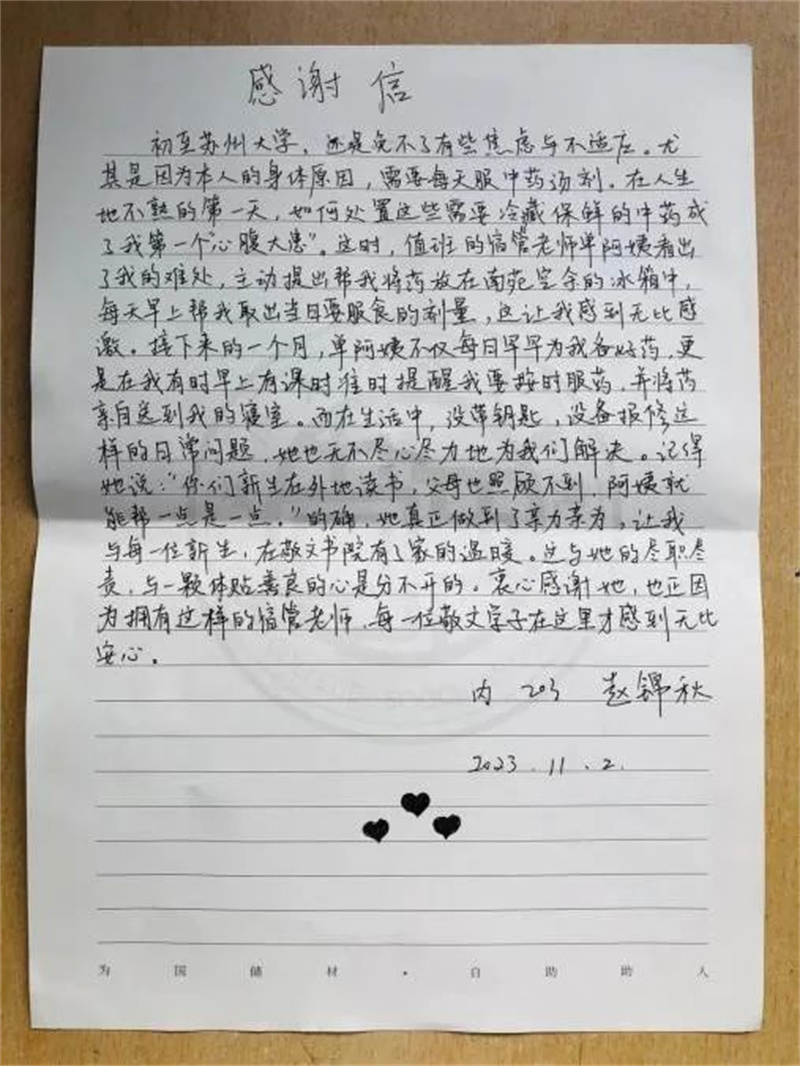 感谢信
初至苏州大学，还是免不了有些焦虑与不适应。尤
其是因为本人的身体原因，需要每天服中药汤剂。在人生
地不熟的第一天，如何处置这些需要冷藏保鲜的中药成
了我第一个“心腹大患”。这时，值班的宿管老师单阿姨看出
了我的难处，主动提出帮我将药放在南苑空余的冰箱中，
每天早上帮我取出当日要服食的剂量，这让我感到无比感
激。接下来的一个月，单阿姨不仅每日早早为我备好药，更
是在我有时早上有课时准时提醒我要按时服药，并将药
亲自送到我的寝室。而在生活中，没带钥匙，设备报修这
样的日常问题，她也无不尽心尽力地为我们解决。记得
她说：“你们新生在外地读书，父母也照顾不到，阿姨就
能帮一点是一点。”的确，她真正做到了亲力亲为，让我
与每一位新生，在敬文书院有了家的温暖。这与她的尽职尽
责，与一颗体贴善良的心是分不开的。衷心感谢她，也正因
为拥有这样的宿管老师，每一位敬文学子在这里才感到无比
安心。
内 203 赵锦秋
2023.11.2.
为国储材·自助助人